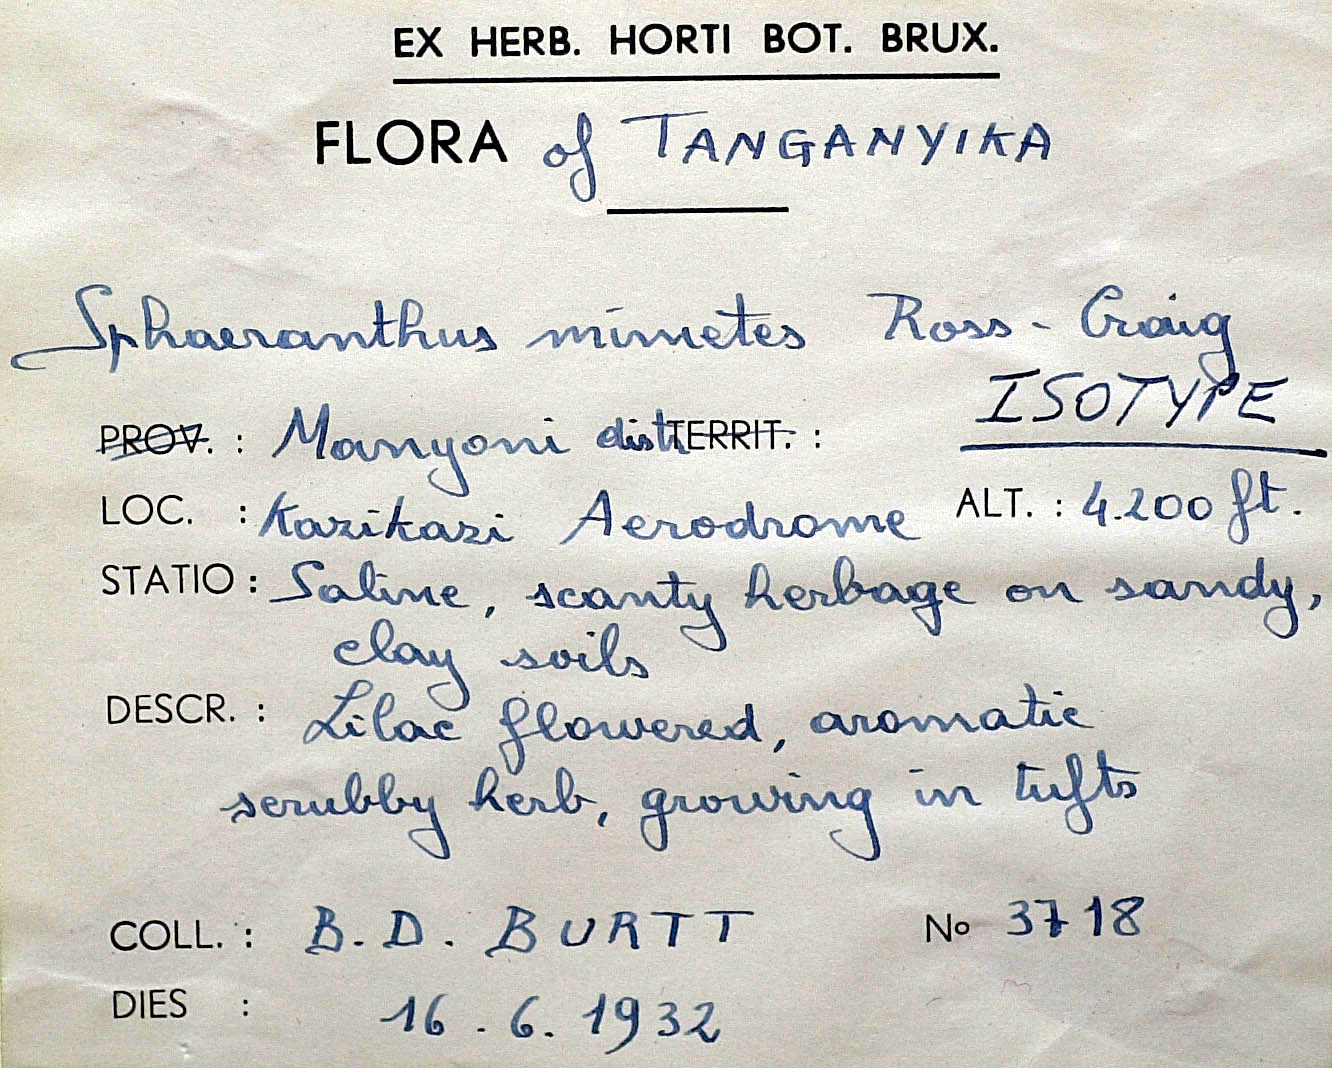 EX HERB. HORTI BOT. BRUX.
FLORA of TANGANYIKA
Sphaeranthus mimetes Ross-Craig
ISOTYPE
PROV. : Manyoni distr TERRIT. :
LOC. : Kazikazi Aerodrome ALT. : 4.200 ft.
STATIO : Saline, scanty herbage on sandy,
clay soils
DESCR. : Lilac flowered, aromatic
scrubby herb, growing in tufts
COLL. : B. D. BURTT No 3718
DIES : 16 . 6. 1932